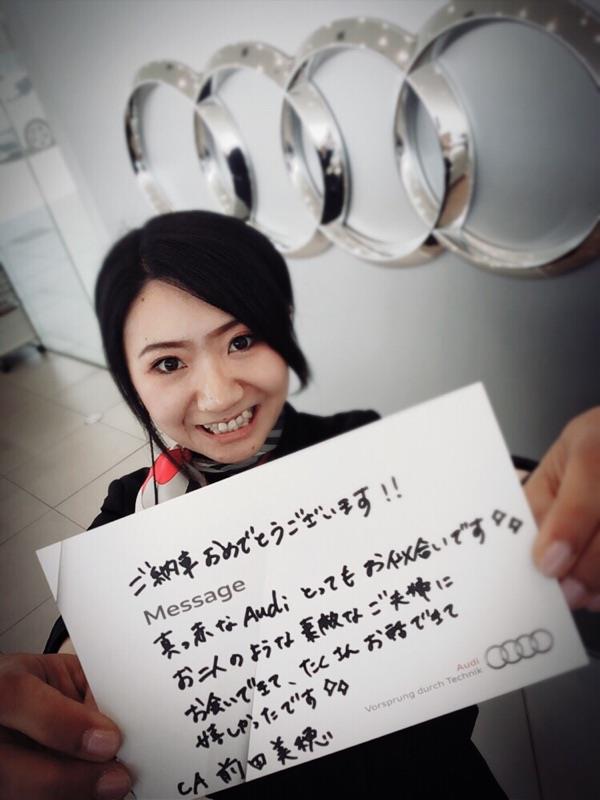 ご納車おめでとうございます!!
Message
真っ赤なAudiとってもお似合いです
お二人のような素敵なご夫婦に
お会いできて、たくさんお話できて
嬉しかったです
CA 前田美穂
Audi
Vorsprung durch Technik